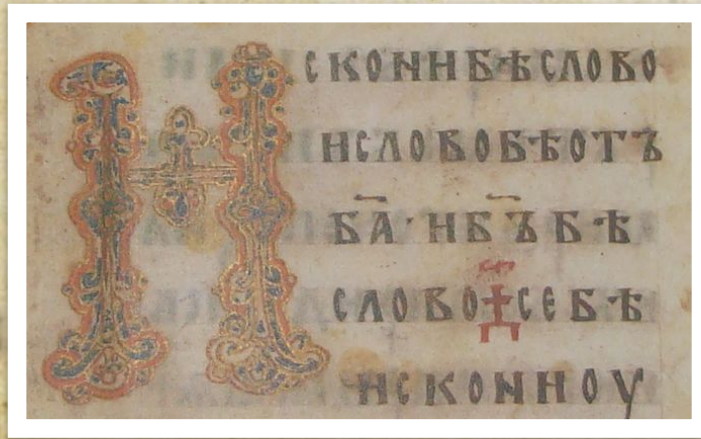 ИСКОНИБѢСЛОВО
ИСЛОВОБѢОТЪ
Б҃А·ИБ҃ЪБѢ
СЛОВО СЕБѢ
ИСКОНИОУ